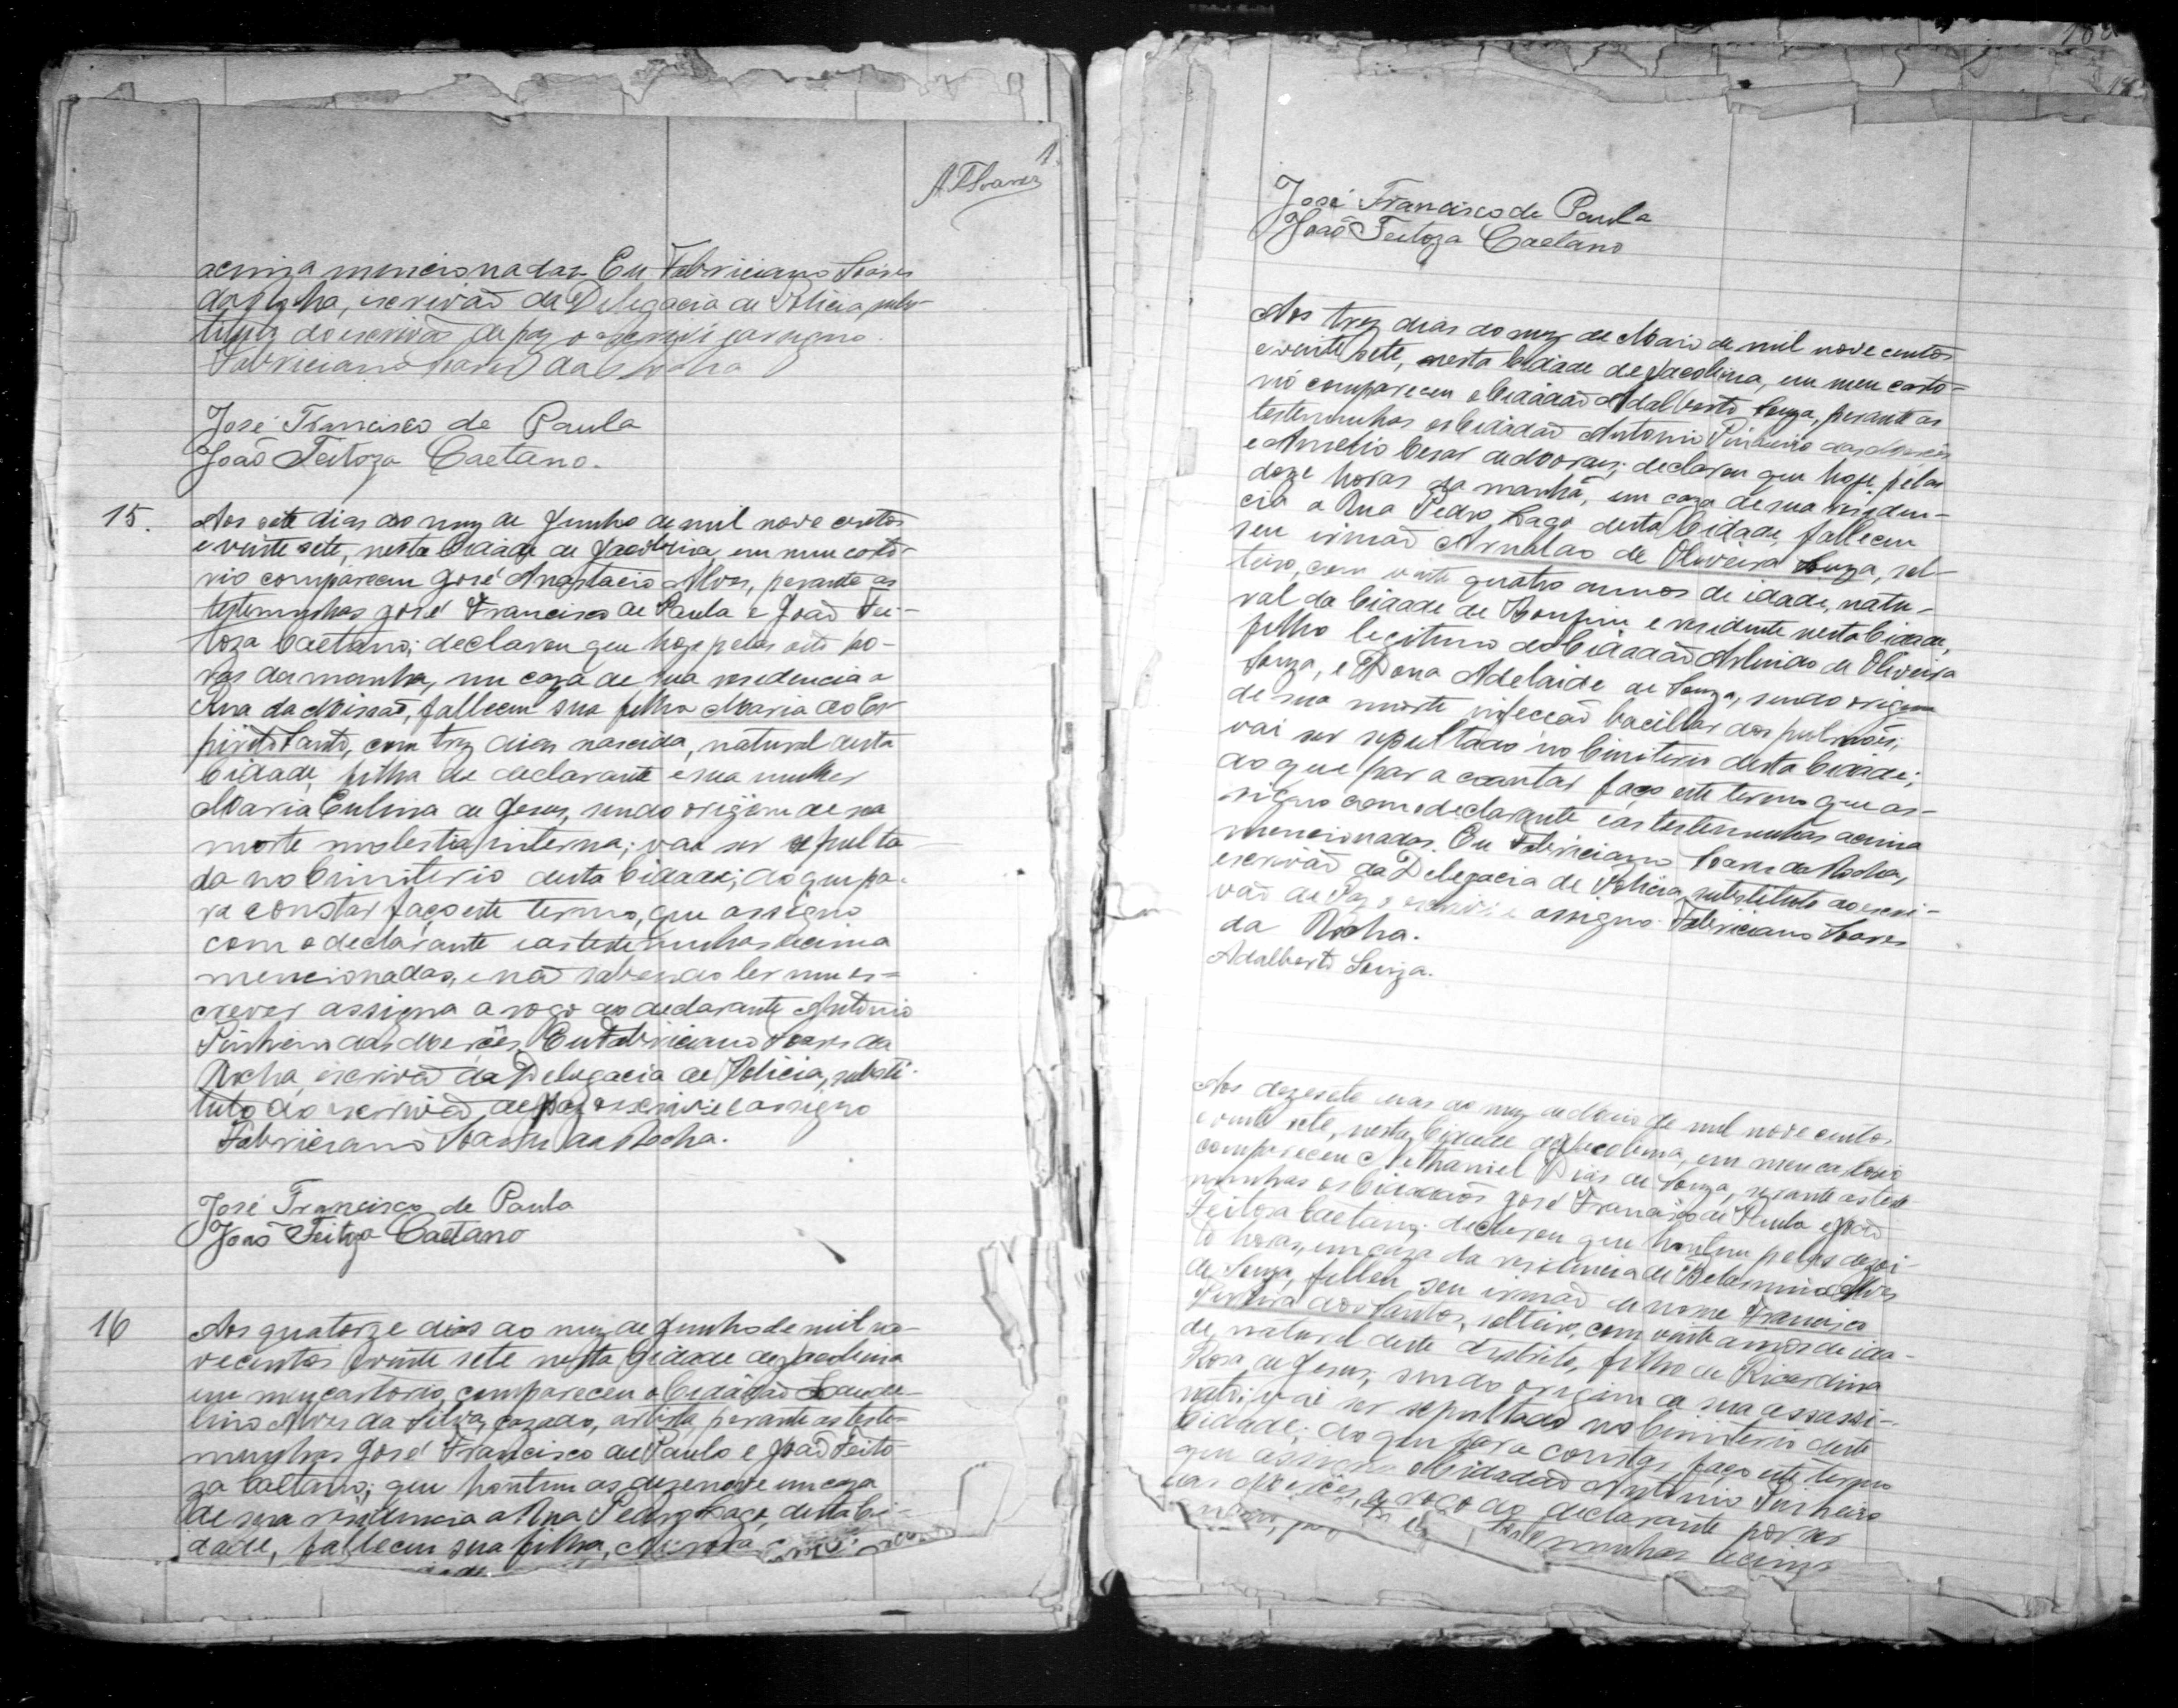 1
acima mencionadas. Eu Fabriciano Soares
da Rocha, escrivão da Delegacia de Policia, subs-
tituto do escrivão de paz o escrevi
Fabriciano Soares da Rocha
José Francisco de Paula
João Feitoza Caetano.
15. Aos sete dias do mez de Junho de mil nove centos
e vinte sete, nesta Cidade de Jacobina, em meu carto-
rio compareceu José Anastacio Alves, perante as
testemunhas José Francisco de Paula e João Fei-
toza Caetano; declarou que hoje pelas oito ho-
ras da manha, em caza de sua residencia a
Rua da Missão, falleceu sua filha Maria do Es-
pirito Santo, com trez dias nascida, natural desta
Cidade, filha de declarante e sua mulher
Maria Eulina de Jesus, sendo origem de sua
morte molestia interna; vae ser sepulta-
da no Cimiterio desta Cidade; do que pa-
ra constar faço este termo, que assigno
com o declarante e as testemunhas acima
mencionadas, e não sabendo ler nem es-
crever assigna a rogo do declarante Antonio
Pinheiro das Mercês. Eu Fabriciano Soares da
Rocha, escrivão da Delegacia de Policia, substi-
tuto do escrivão de paz o escrevi e assigno
Fabriciano Soares da Rocha.
José Francisco de Paula
João Feitoza Caetano
16 Aos quatorze dias do mez de Junho de mil no-
vecentos vinte sete nesta Cidade de Jacobina
em meu cartorio, compareceu o Cidadão
lino Alves da Silva, cazado, artista, perante as teste-
munhas José Francisco de Paula e João Feito-
za Caetano; que hontem as dezenove em caza
de sua residencia a Rua Pedro Lago, desta Ci-
dade, falleceu sua filha,
José Francisco de Paula
João Feitoza Caetano
Aos trez dias do mez de Maio de mil nove centos
e vinte sete, nesta Cidade de Jacobina, em meu carto-
rio compareceu o Cidadão Adalberto Souza, perante as
testemunhas os Cidadão Antonio Pinheiro das Mercês
e Amelio Cesar de Moraes; declarou que hoje pelas
doze horas da manhã, em caza de sua residen-
cia a Rua Pedro Lago desta Cidade, falleceu
seu irmão Arnaldo de Oliveira Souza, sol-
teiro, com vinte quatro annos de idade, natu-
ral da Cidade de Bomfim e residente nesta Cidade,
filho legitimo do Cidadão Arlindo de Oliveira
Souza, e Dona Adelaide de Souza, sendo origem
de sua morte infecção bacillar dos pulmões;
vai ser sepultado no Cimiterio desta Cidade;
do que para constar faço este termo que as-
signo com o declarante e as testemunhas acima
mencionadas. Eu Fabriciano Soares da Rocha,
escrivão da Delegacia de Policia, substituto do escri-
vão de Paz o escrevi e assigno. Fabriciano Soares
da Rocha.
Adalberto Souza.
Aos dezesete dias do mez de Maio de mil nove centos
e vinte sete, nesta Cidade de Jacobina, em meu cartorio
compareceu Nathaniel Dias de Souza, perante as teste-
munhas os Cidadãos José Francisco de Paula e João
Feitosa Caetano; declarou que hontem pelas dezoi-
to horas, em caza da residencia de Belarmino Alves
de Souza, falleu seu irmão de nome Francisco
Pereira dos Santos, solteiro, com vinte annos de ida-
de, natural deste districto, filho de Ricardina
Rosa de Jesus, sendo origem de sua assassi-
nato; vai ser sepultado no Cimiterio desta
Cidade; do que para constar faço este termo
que assigna o Cidadão Antonio Pinheiro
das Mercês, a rogo do declarante por não
testemunhas acima